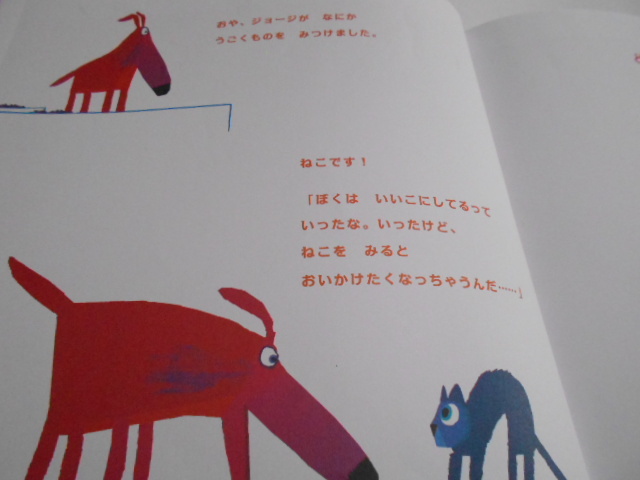 おや、ジョージが　なにか
うごくものを　みつけました。
ねこです！
「ぼくは　いいこにしてるって
いったな。いったけど、
ねこを　みると
おいかけたくなっちゃうんだ……」